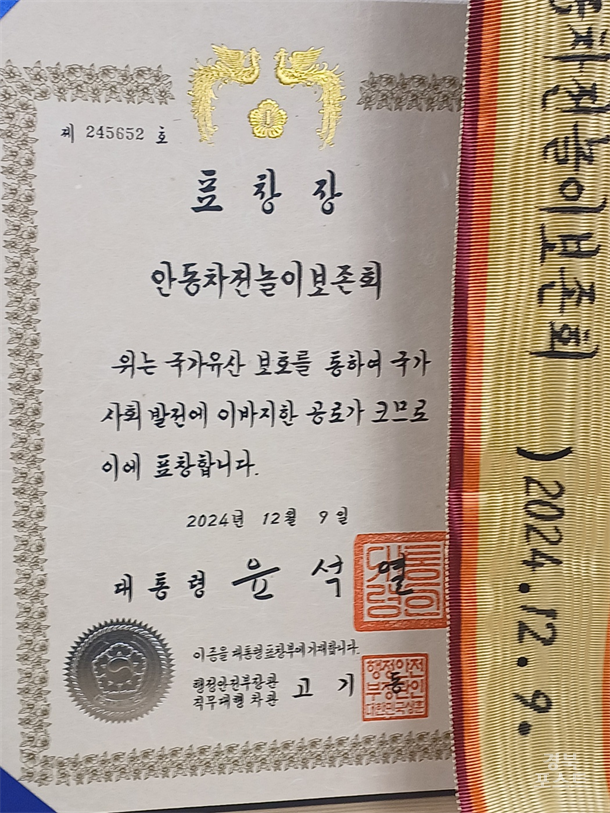 제 245652 호
표창장
안동차전놀이보존회
위는 국가유산 보호를 통하여 국가
사회 발전에 이바지한 공로가 크므로
이에 표창합니다.
2024년 12월 9일
대통령 윤석열
대통령의인
이 증을 대통령표창부에 기재합니다.
행정안전부장관
직무대행 차관 고기동
행정안전
부장관인
동차전놀이보존회 ) 2024. 12. 9.
경북
포스트